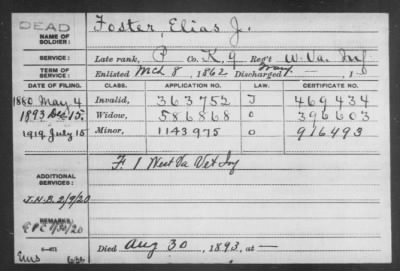 DEAD
NAME OF SOLDIER: Foster, Elias J.
SERVICE: Late rank, P Co. K, 9 Reg't W. Va. Inf
TERM OF SERVICE: Enlisted Mch 8, 1862 Discharged , 1
DATE OF FILING. CLASS. APPLICATION NO. LAW. CERTIFICATE NO.
1880 May 4 Invalid, 363752 J 469434
1893 Dec 15. Widow, 586868 O 396603
1919 July 15 Minor, 1143975 O 916493
F. 1 West Va Vet Inf
ADDITIONAL SERVICES:
J.N.B. 2/9/20
REMARKS:
Died Aug 30, 1893, at —